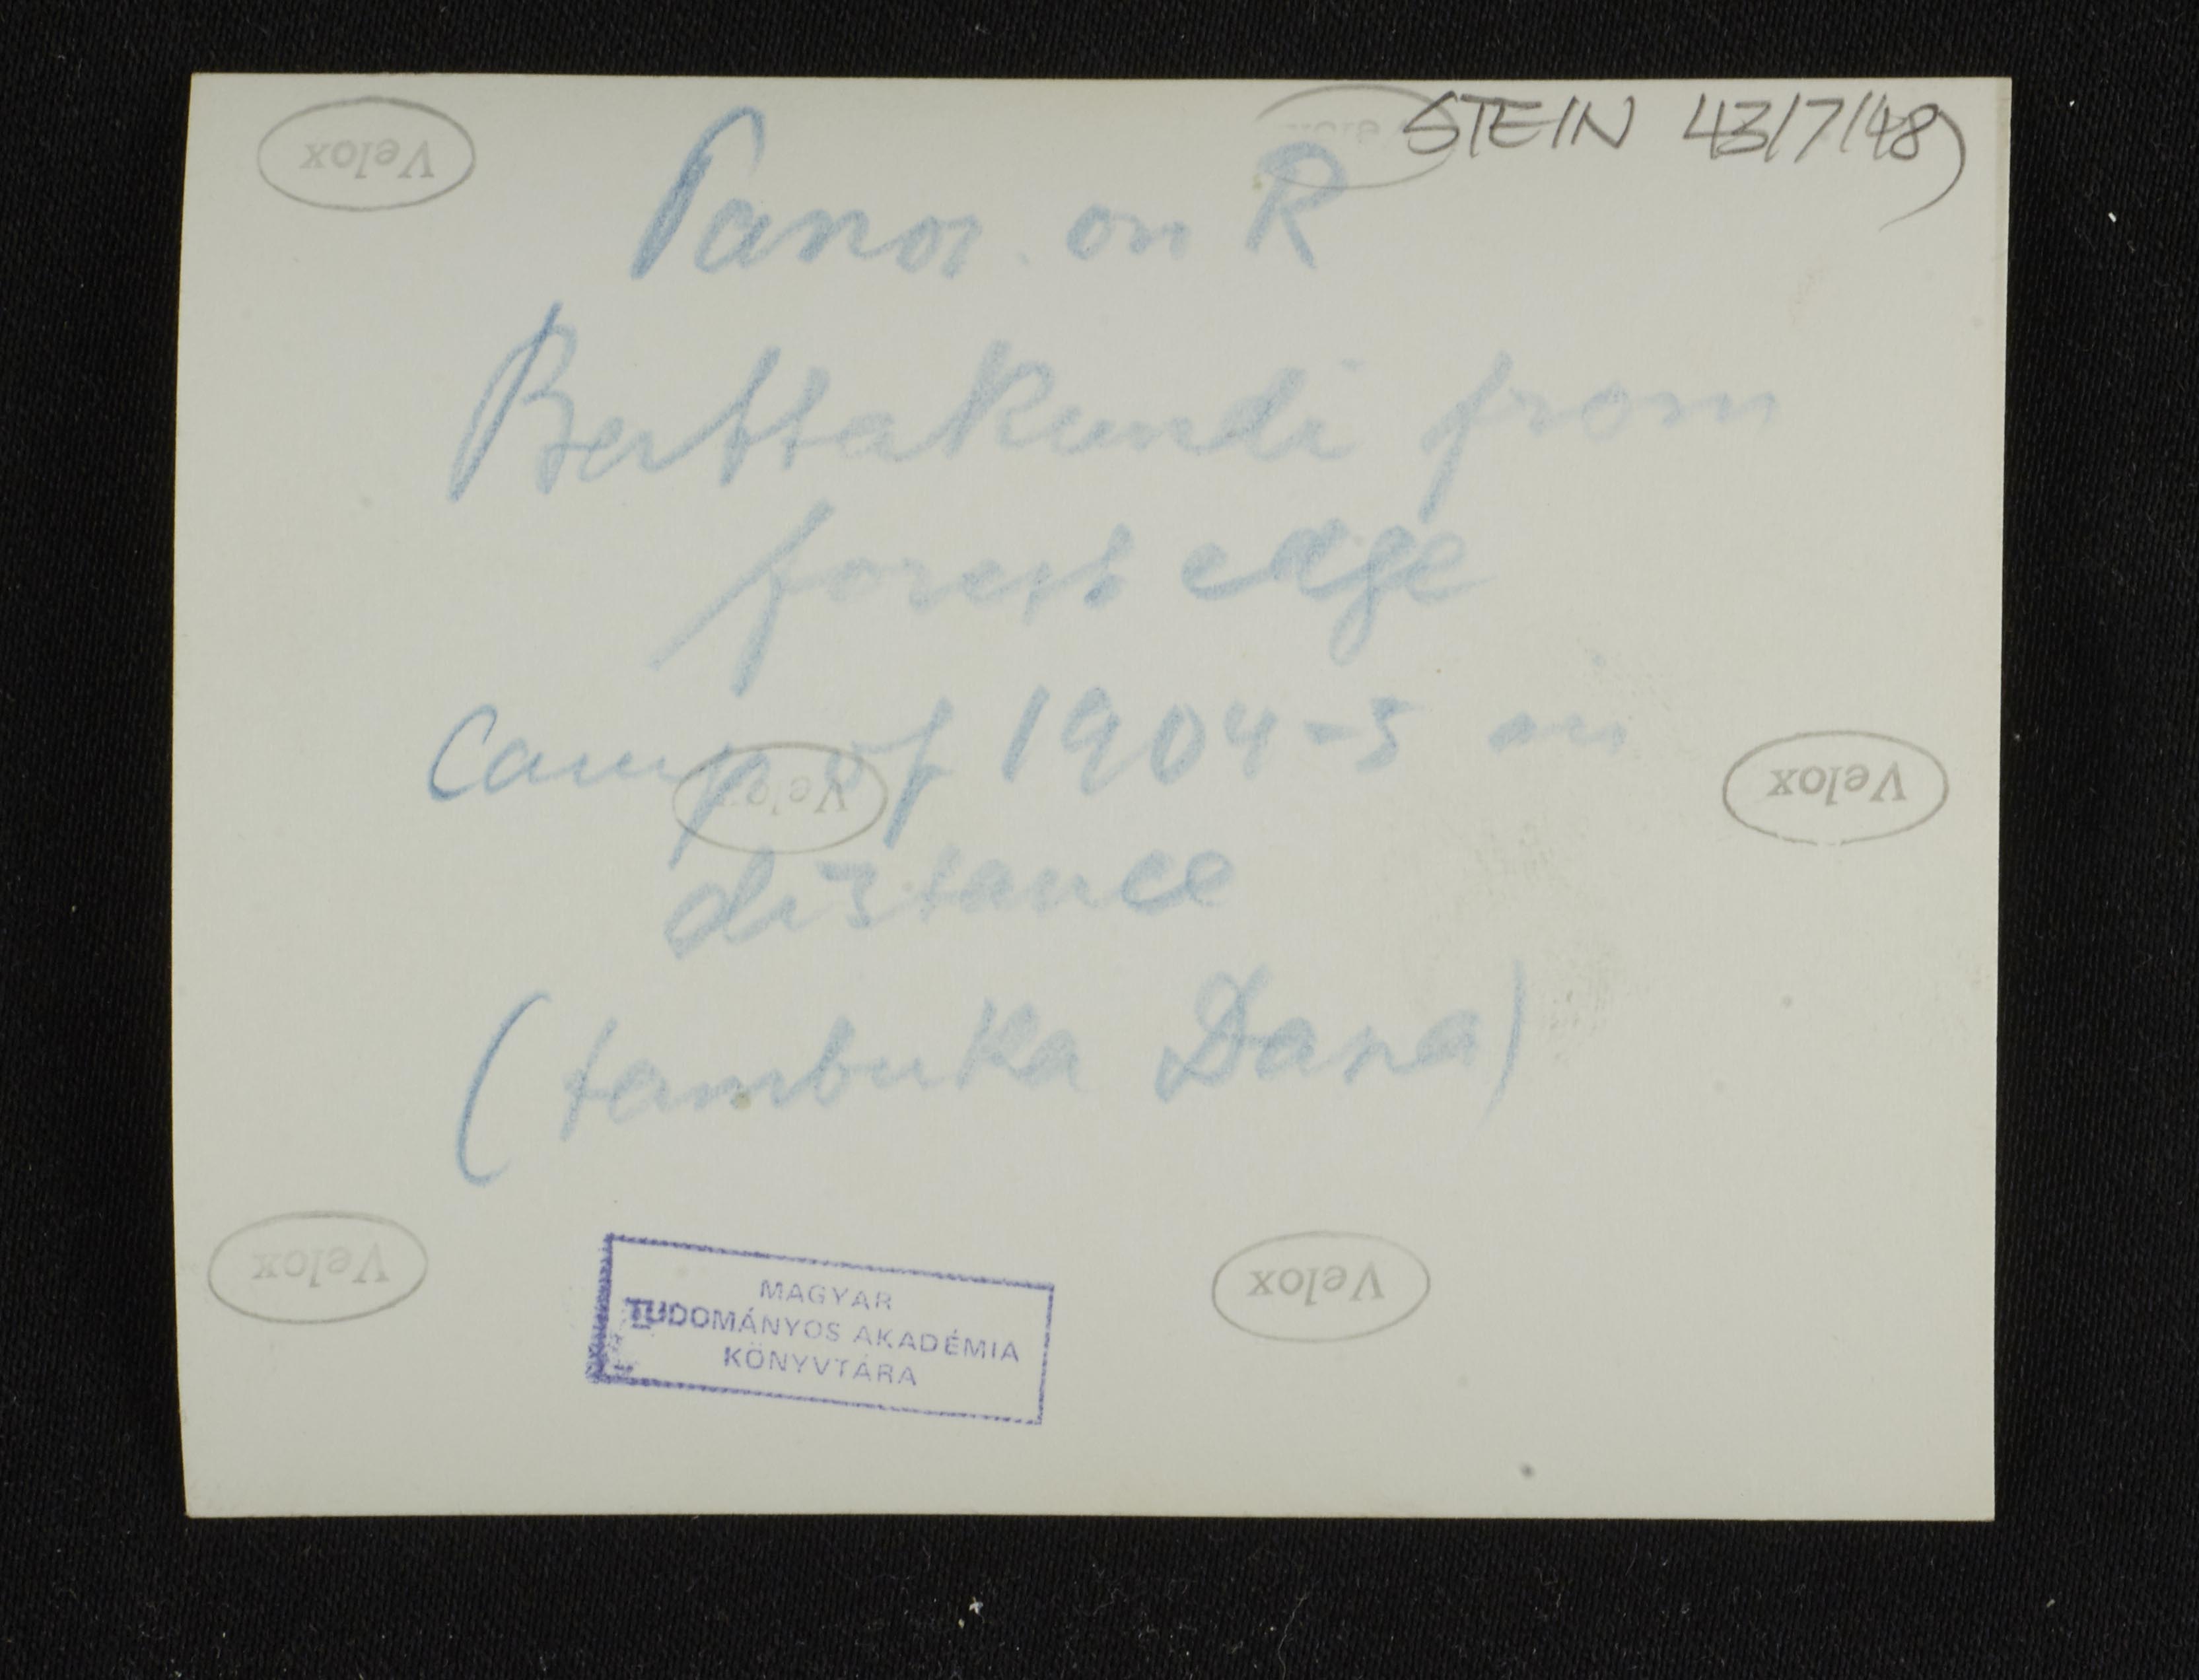 STEIN 43/7/(48)
Velox
Panor. on R
Battakundi from
forest edge
Camp of 1904-5 in
Velox
Velox
distance
(tambuka Dana)
Velox
Velox
MAGYAR
TUDOMÁNYOS AKADÉMIA
KÖNYVTÁRA